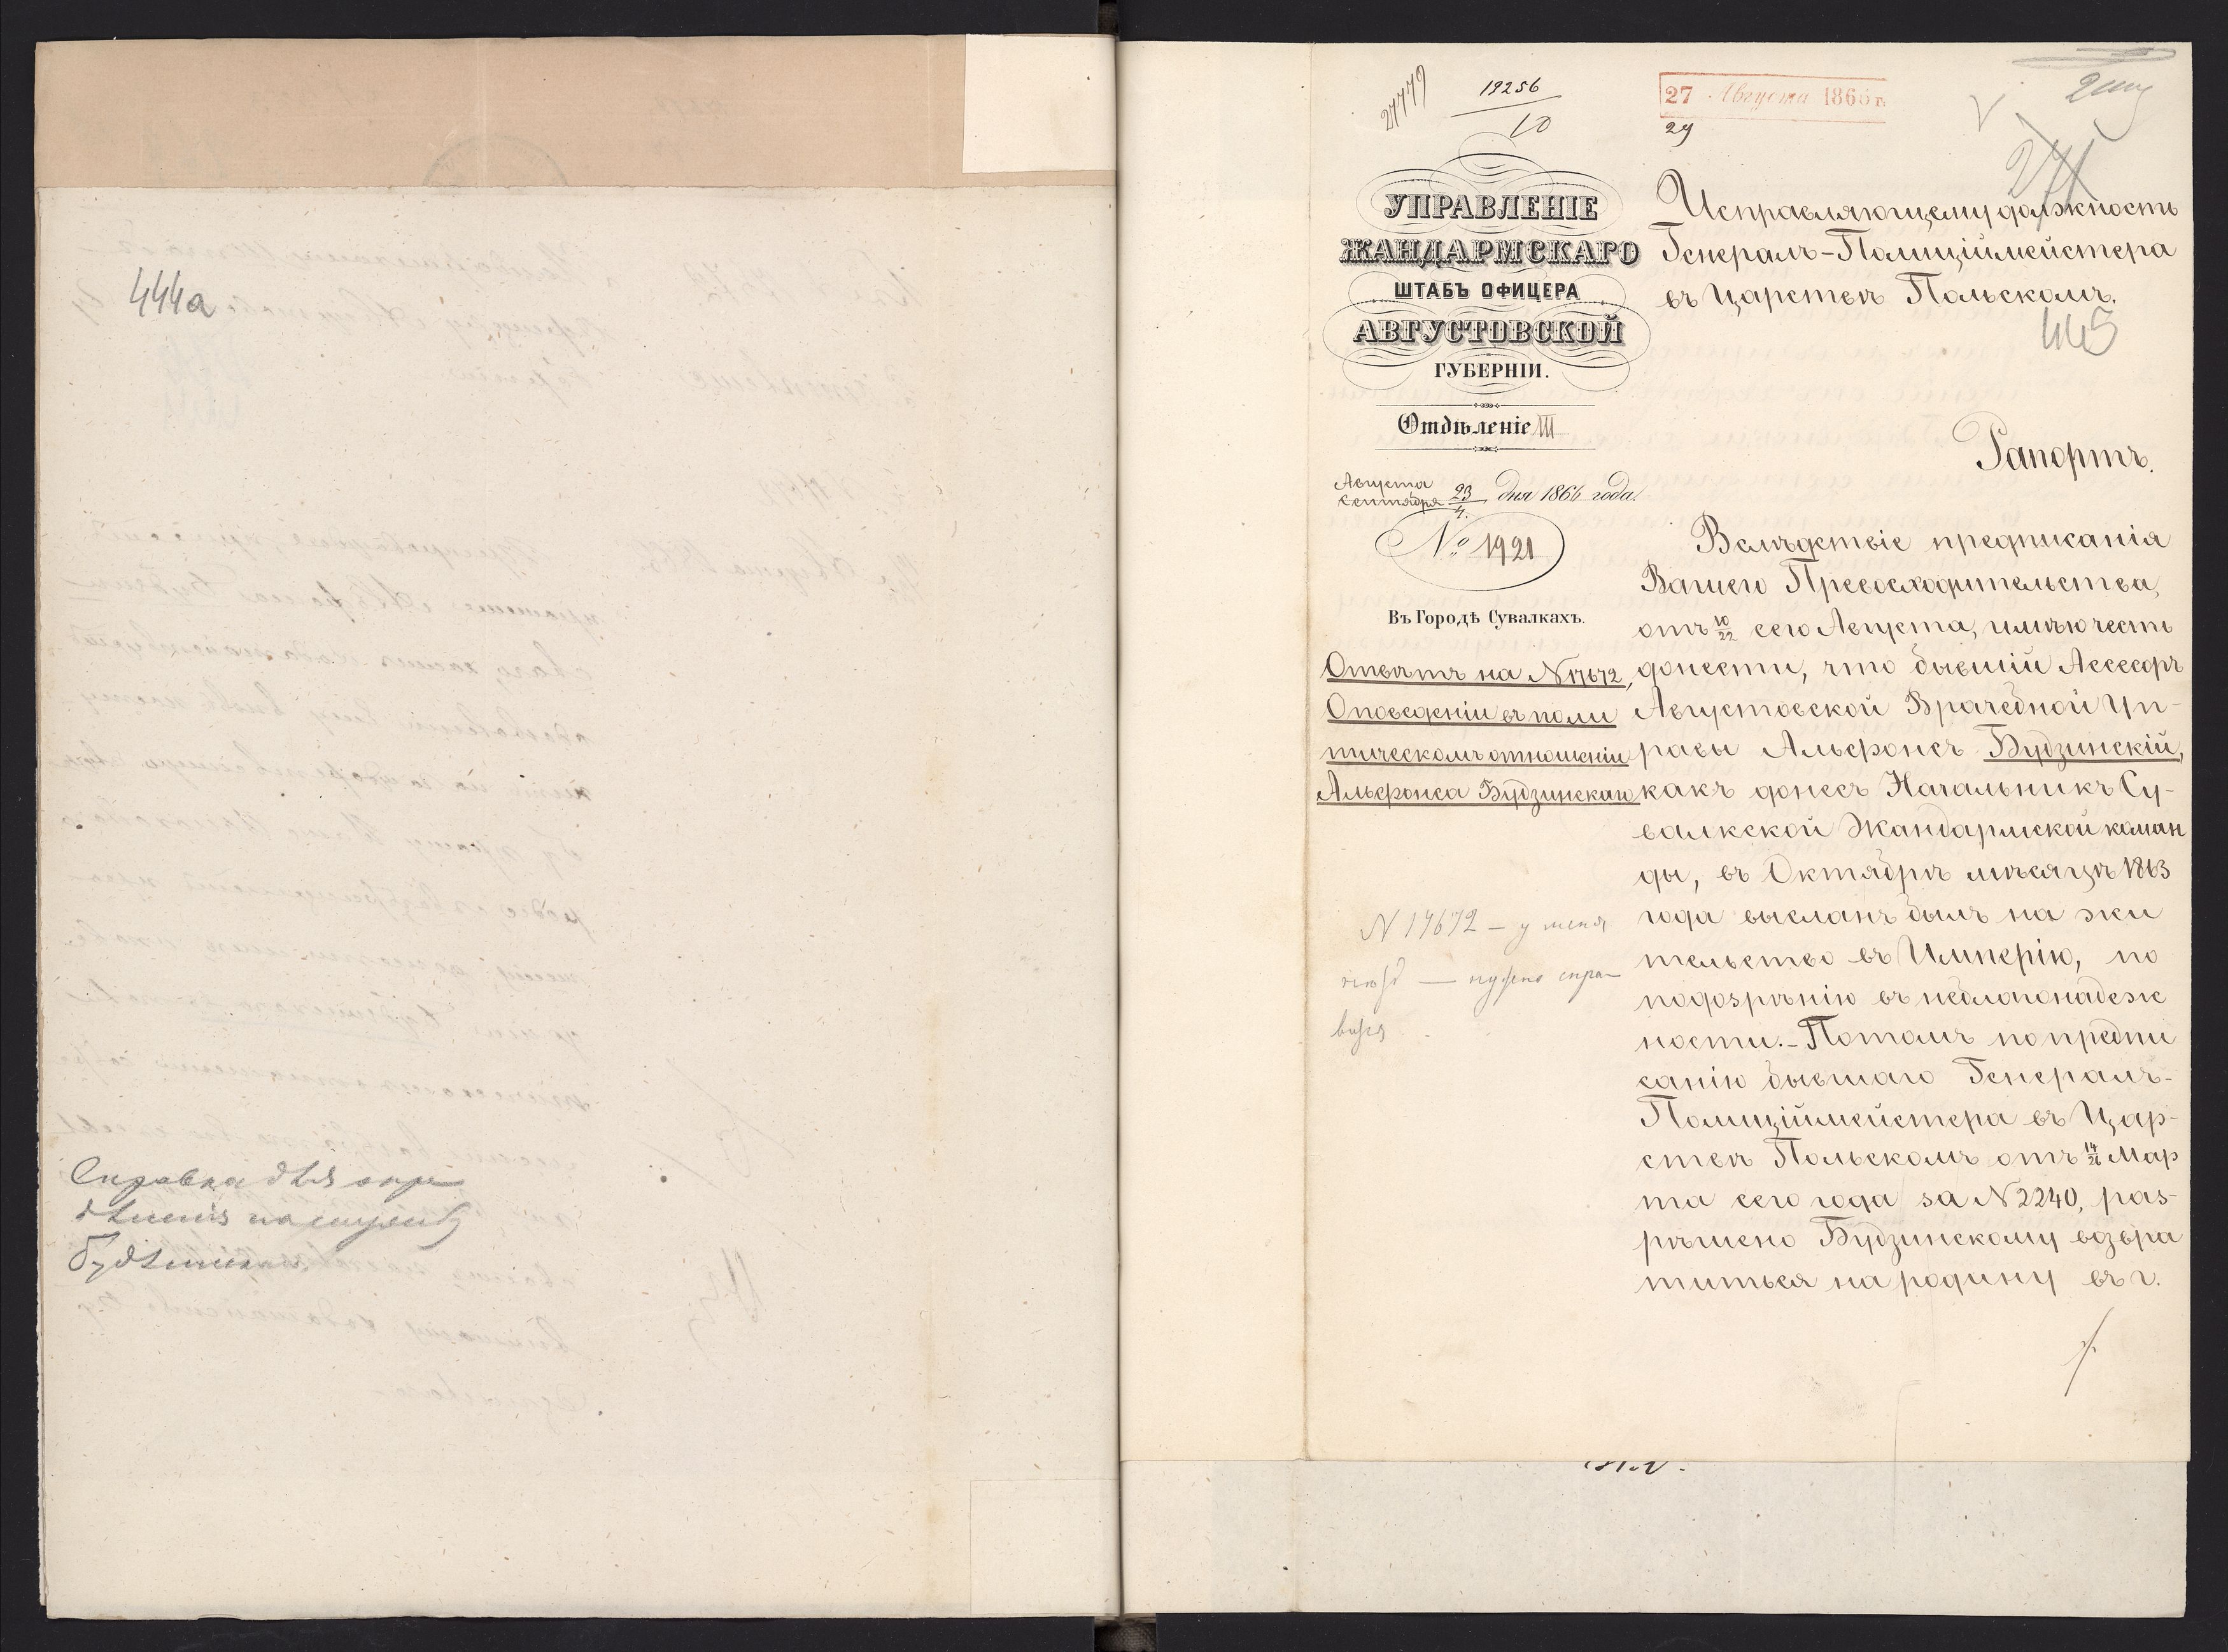 444а
Справка для опре
дѣленія на службу
Будзинскаго
27779
19256
10
27 Августа 1866 г.
29
271
445
УПРАВЛЕНІЕ
ЖАНДАРМСКАГО
ШТАБЪ ОФИЦЕРА
АВГУСТОВСКОЙ
ГУБЕРНІИ.
Отдѣленіе III
Августа 23
Сентября 4. дня 1866 года.
№ 1921
Въ Городѣ Сувалкахъ.
Отвѣтъ на N 17672,
О поведеніи въ поли
тическомъ отношеніи
Альфонса Будзинскаго
N 17672 – у меня
нѣтъ — нужно спра-
виться
Исправляющему должность
Генералъ-Полиціймейстера
въ Царствѣ Польскомъ.
Рапортъ.
Вслѣдствіе предписанія
Вашего Превосходительства,
отъ 10/22 сего Августа, имѣю честь
донести, что бывшій Ассесоръ
Августовской Врачебной Уп-
равы Альфонсъ Будзинскій,
какъ донесъ Начальникъ Су-
валкской Жандармской коман
ды, въ Октябрѣ мѣсяцѣ 1863
года высланъ былъ на жи
тельство въ Имперію, по
подозрѣнію въ неблагонадеж
ности.- Потомъ по предпи
санію бывшаго Генералъ-
Полиціймейстера въ Цар-
ствѣ Польскомъ отъ 14/26 Мар
та сего года за N 2240, раз-
рѣшено Будзинскому возвра
титься на родину въ г.